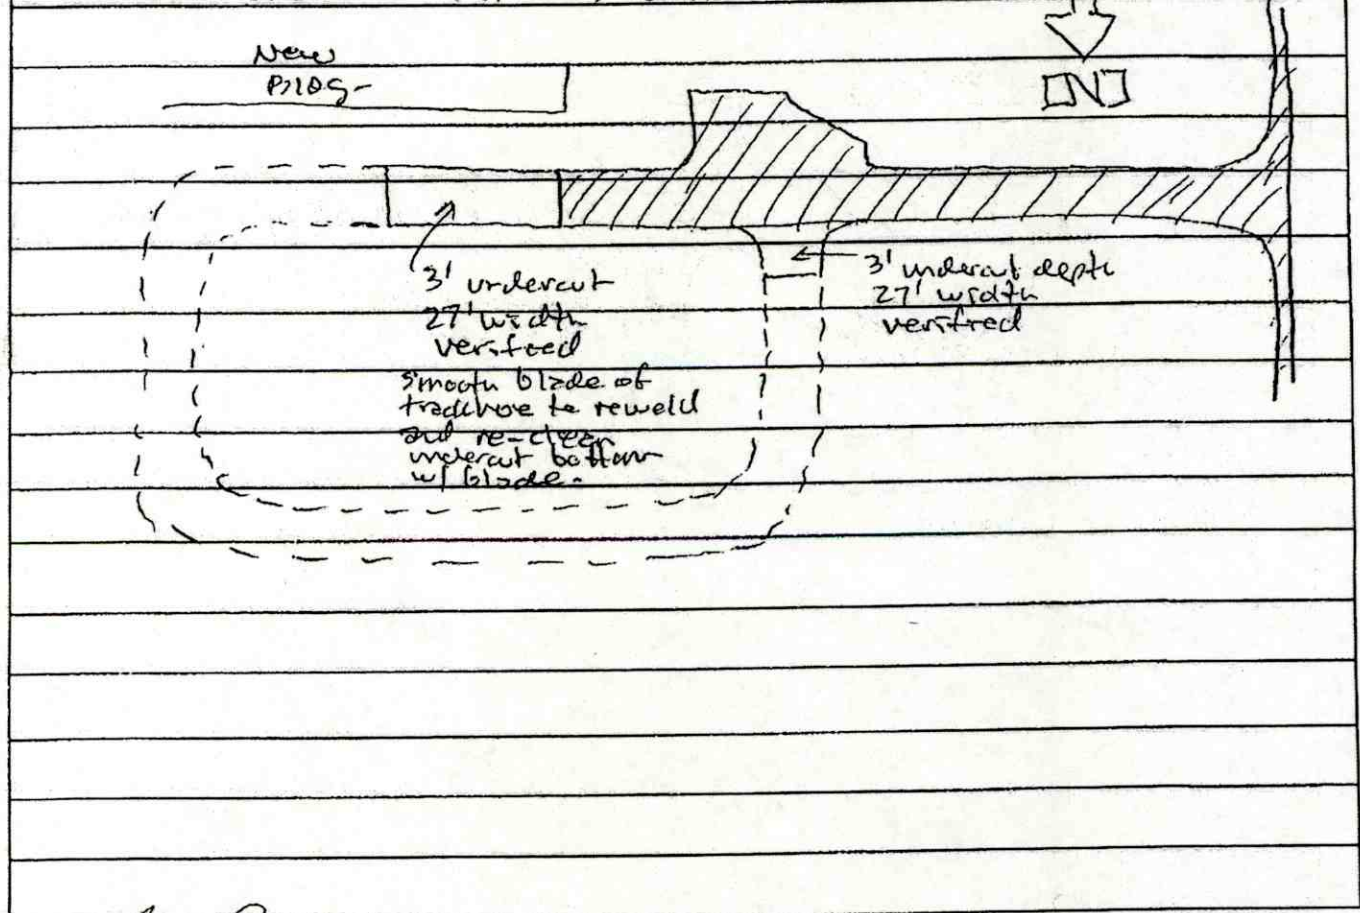 New
Bldg-
N
3' undercut
27' width
verified
smooth blade of
trackhoe to reweld
and re-clean
undercut bottom
w/ blade.
3' undercut depth
27' width
verified